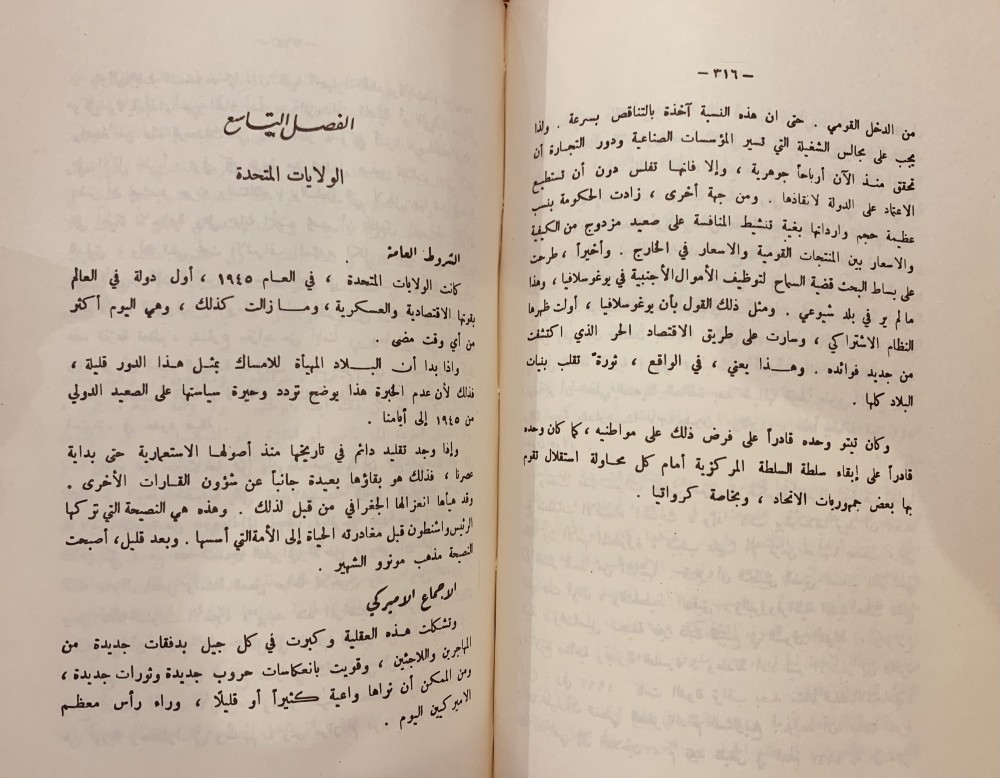 — ٣١٦ —
من الدخل القومي . حتى ان هذه النسبة آخذة بالتناقص بسرعة . ولذا
يجب على مجالس الشغيلة التي تسير المؤسسات الصناعية ودور التجارة أن
تحقق منذ الآن أرباحاً جوهرية ، وإلا فانها تفلس دون أن تستطيع
الاعتماد على الدولة لانقاذها . ومن جهة أخرى ، زادت الحكومة بنسب
عظيمة حجم وارداتها بغية تنشيط المنافسة على صعيد مزدوج من الكيفية
والاسعار بين المنتجات القومية والاسعار في الخارج . وأخيراً ، طرحت
على بساط البحث قضية السماح لتوظيف الأموال الأجنبية في يوغوسلافيا ، وهذا
مالم ير في بلد شيوعي . ومثل ذلك القول بأن يوغوسلافيا ، أولت ظهرها
النظام الاشتراكي ، وسارت على طريق الاقتصاد الحر الذي اكتشفت
من جديد فوائده . وهذا يعني ، في الواقع ، ثورة تقلب بنيات
البلاد كلها .
وكان تيتو وحده قادراً على فرض ذلك على مواطنيه ، كما كان وحده
قادراً على إبقاء سلطة السلطة المركزية أمام كل محاولة استقلال تقوم
بها بعض جمهوريات الاتحاد ، وبخاصة كرواتيا .
الفصل التاسع
الولايات المتحدة
الشروط العامة .
كانت الولايات المتحدة ، في العام ١٩٤٥ ، أول دولة في العالم
بقوتها الاقتصادية والعسكرية ، وما زالت كذلك ، وهي اليوم أكثر
من أي وقت مضى .
واذا بدا أن البلاد المهيأة للامساك بمثل هذا الدور قليلة ،
فذلك لأن عدم الخبرة هذا يوضح تردد وحيرة سياستها على الصعيد الدولي
من ١٩٤٥ إلى أيامنا .
وإذا وجد تقليد دائم في تاريخها منذ أصولها الاستعمارية حتى بداية
عصرنا ، فذلك هو بقاؤها بعيدة جانباً عن شؤون القارات الأخرى .
وقد هيأها انعزالها الجغرافي من قبل لذلك . وهذه هي النصيحة التي تركها
الرئيس واشنطون قبل مغادرته الحياة إلى الأمة التي أسسها . وبعد قليل ، أصبحت
النصيحة مذهب مونرو الشهير .
الاجماع الاميركي
وتشكلت هذه العقلية وكبرت في كل جيل بدفقات جديدة من
المهاجرين واللاجئين ، وقويت بانعكاسات حروب جديدة وثورات جديدة ،
ومن الممكن أن نراها واعية كثيراً أو قليلًا ، وراء رأس معظم
الاميركيين اليوم .